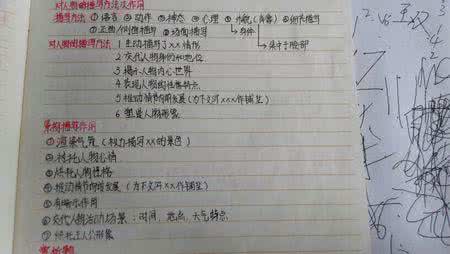 对人物的描写方法及作用
描写方法 ①语言 ②动作 ③神态 ④心理 ⑤外貌(肖像) ⑥细节描写
①正面/侧面描写 ②场面描写 身体
对人物的描写方法 1 生动描写了xx情形 集中于脸部
2 交代人物身份和地位
3 揭示人物内心世界
4 表现人物性格特点
5 推动情节的发展(为下文对xxx作铺垫)
6 塑造人物形象
景物描写作用
①渲染气氛(极力描写xx的景色)
②衬托人物心情
③烘托人物性格
④推动情节的发展(为下文对xx作铺垫)
⑤有暗示作用
⑥交代人物活动场景:时间、地点、天气特点
⑦烘托主人公形象